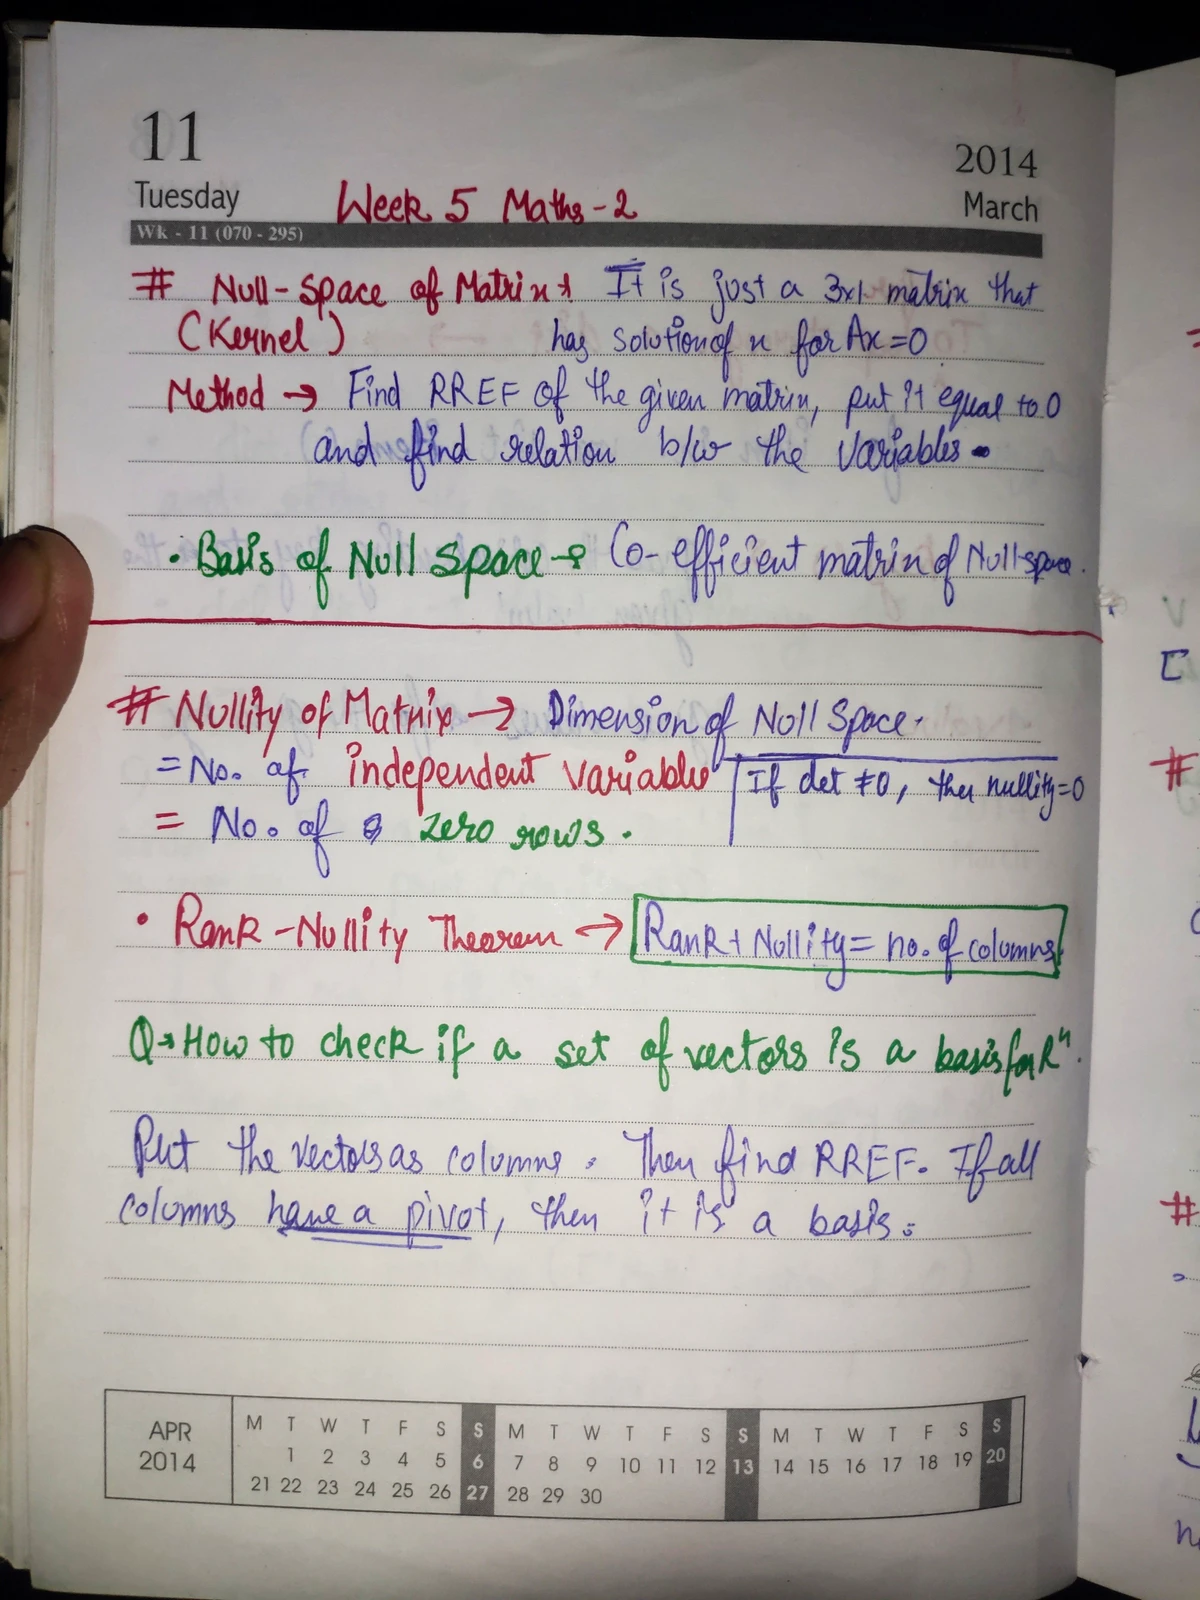 11
2014
Tuesday
March
Week 5 Maths-2
Wk - 11 (070 - 295)
# Null-Space of Matrix → It is just a 3x1 matrix that
(Kernel) has solution of x for Ax=0
Method → Find RREF of the given matrix, put it equal to 0
and find relation b/w the variables.
• Basis of Null space → Co-efficient matrix of Null-space.
# Nullity of Matrix → Dimension of Null Space.
= No. of independent variable
If det ≠0, then nullity=0
= No. of zero rows.
• Rank-Nullity Theorem → Rank + Nullity = no. of columns
Q → How to check if a set of vectors is a basis for Rⁿ.
Put the vectors as columns. Then find RREF. If all
columns have a pivot, then it is a basis.
APR
2014
M T W T F S S M T W T F S S M T W T F S S
1 2 3 4 5 6 7 8 9 10 11 12 13 14 15 16 17 18 19 20
21 22 23 24 25 26 27 28 29 30